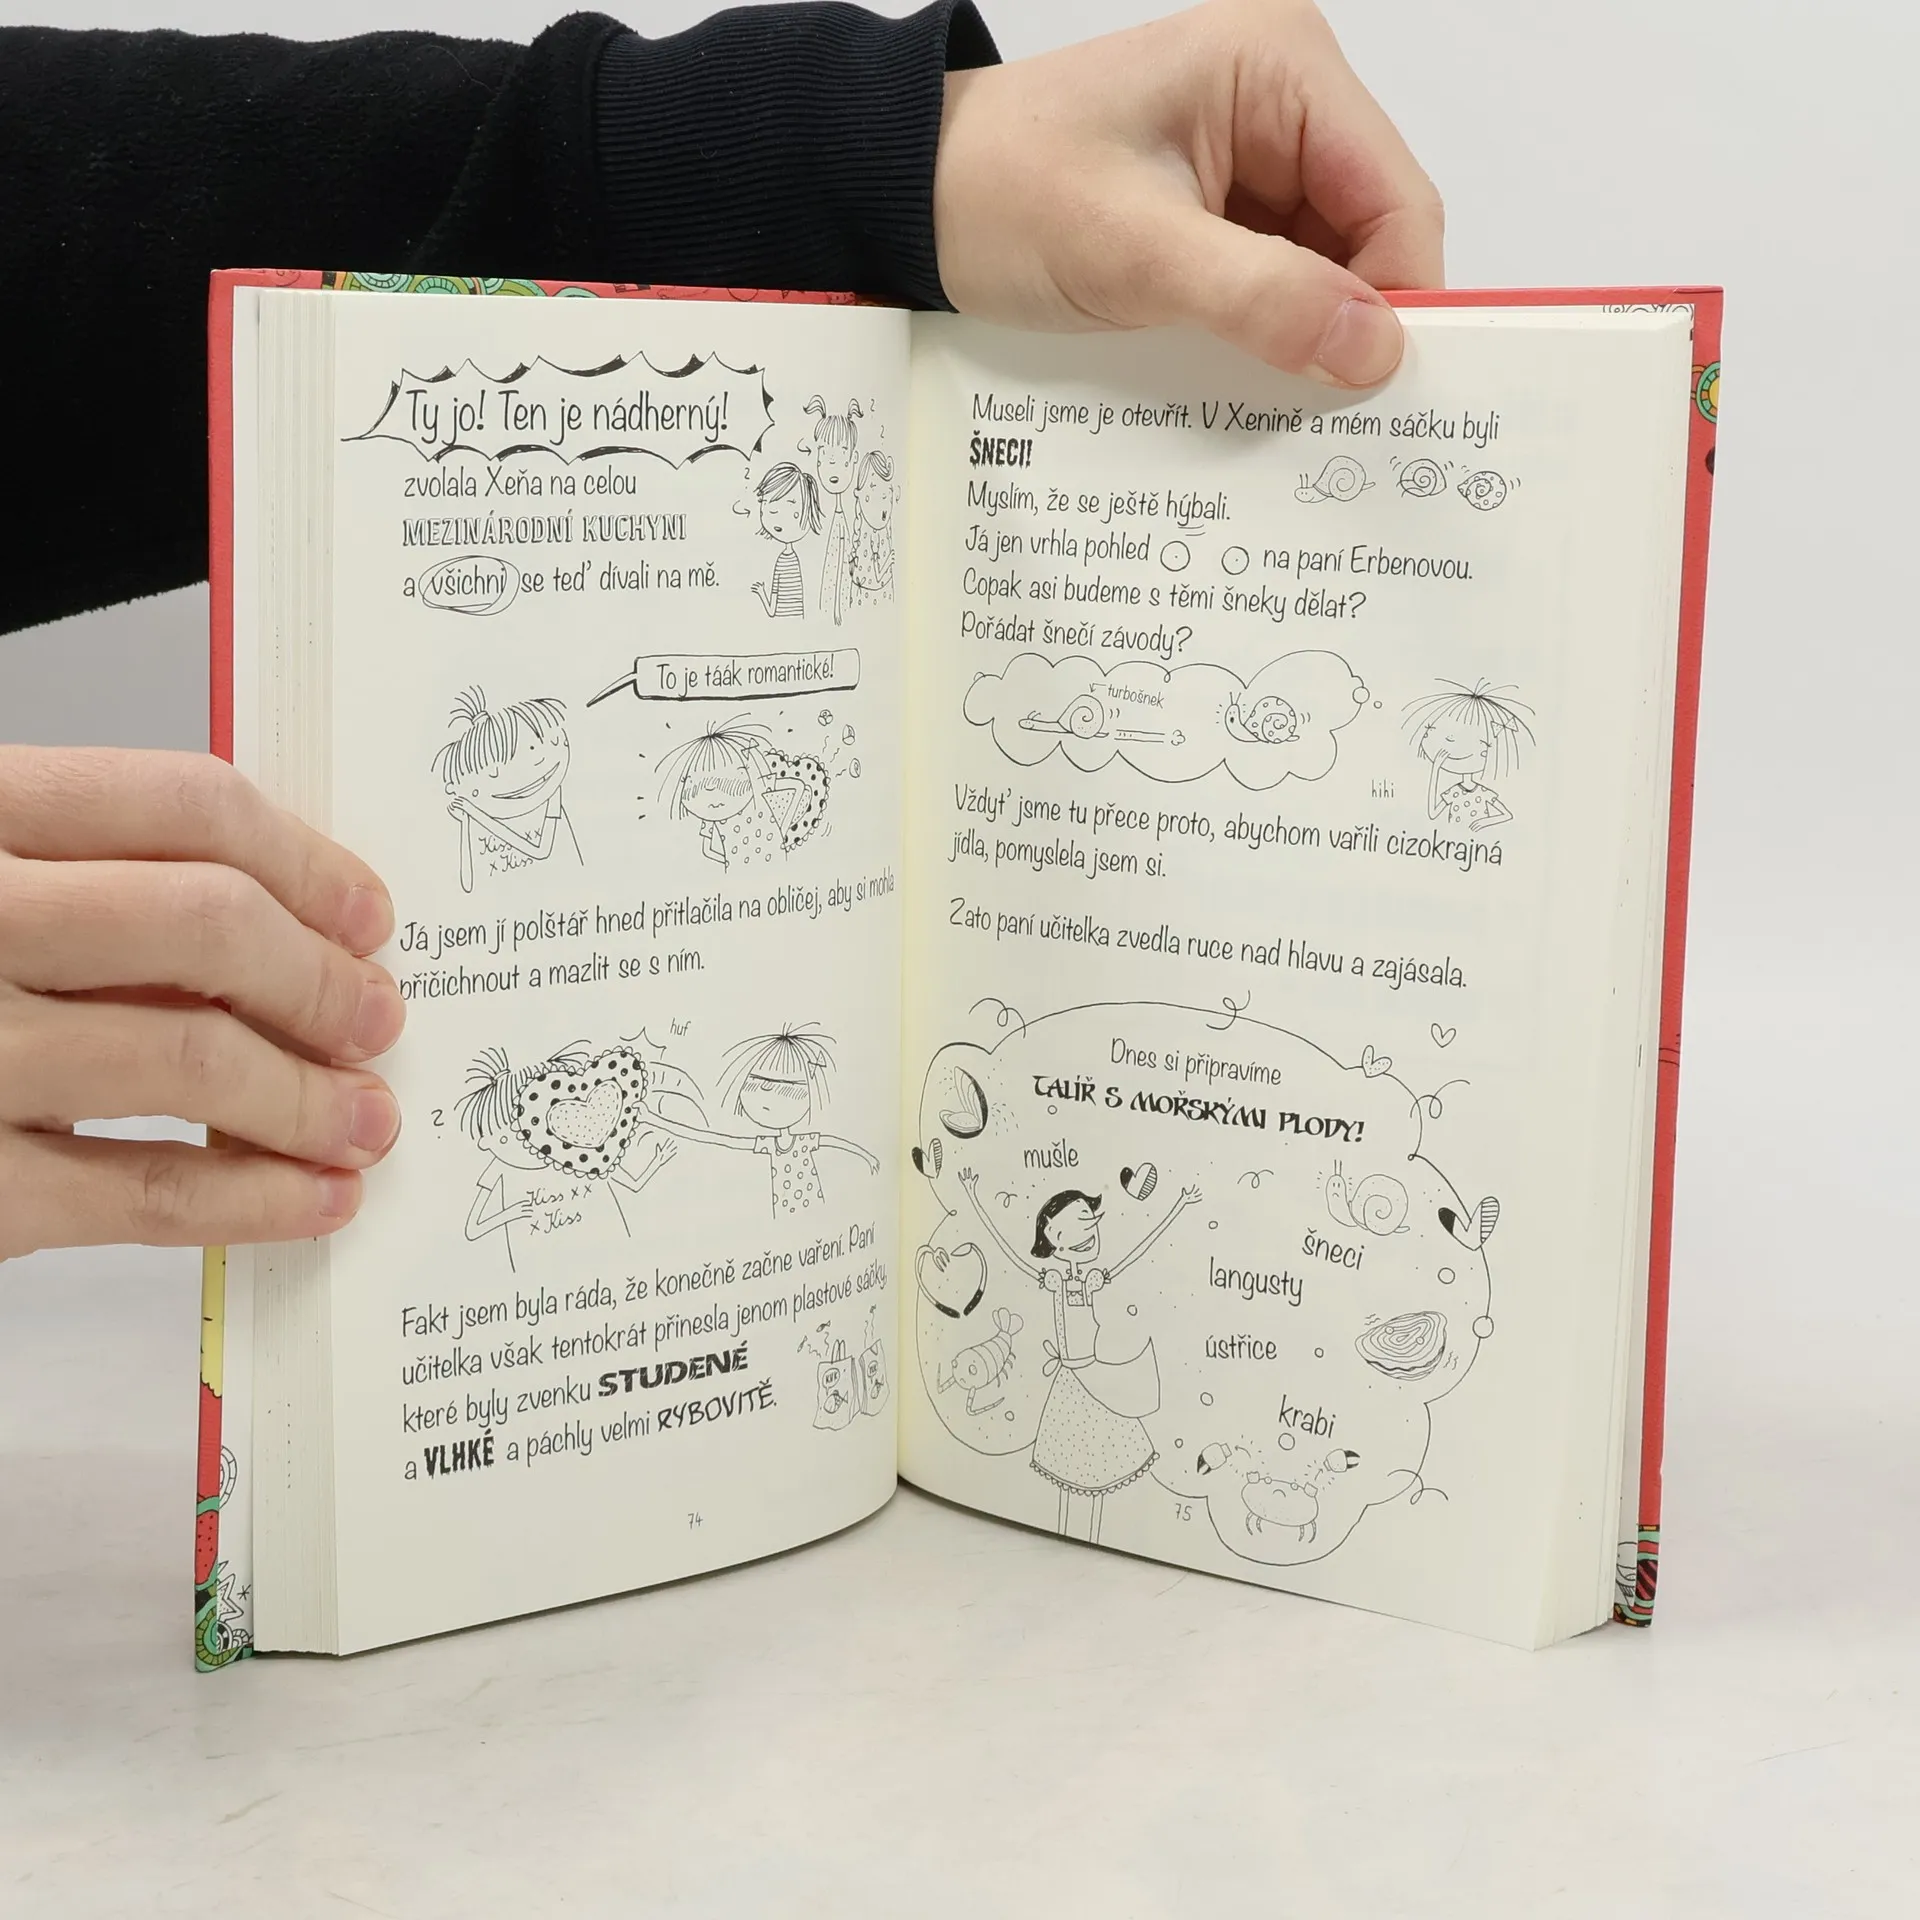 Ty jo! Ten je nádherný!
zvolala Xeňa na celou
MEZINÁRODNÍ KUCHYNI
a všichni se teď dívali na mě.
To je táák romantické!
Kiss xx
x Kiss
Já jsem jí polštář hned přitlačila na obličej, aby si mohla
přičichnout a mazlit se s ním.
huf
?
Kiss xx
x Kiss
Fakt jsem byla ráda, že konečně začne vaření. Paní
učitelka však tentokrát přinesla jenom plastové sáčky,
které byly zvenku STUDENÉ
a VLHKÉ a páchly velmi RYBOVITĚ.
74
Museli jsme je otevřít. V Xenině a mém sáčku byli
ŠNECI!
Myslím, že se ještě hýbali.
Já jen vrhla pohled na paní Erbenovou.
Copak asi budeme s těmi šneky dělat?
Pořádat šnečí závody?
turbošnek
hihi
Vždyť jsme tu přece proto, abychom vařili cizokrajná
jídla, pomyslela jsem si.
Zato paní učitelka zvedla ruce nad hlavu a zajásala.
Dnes si připravíme
TALÍŘ S MOŘSKÝMI PLODY!
mušle
šneci
langusty
ústřice
krabi
75